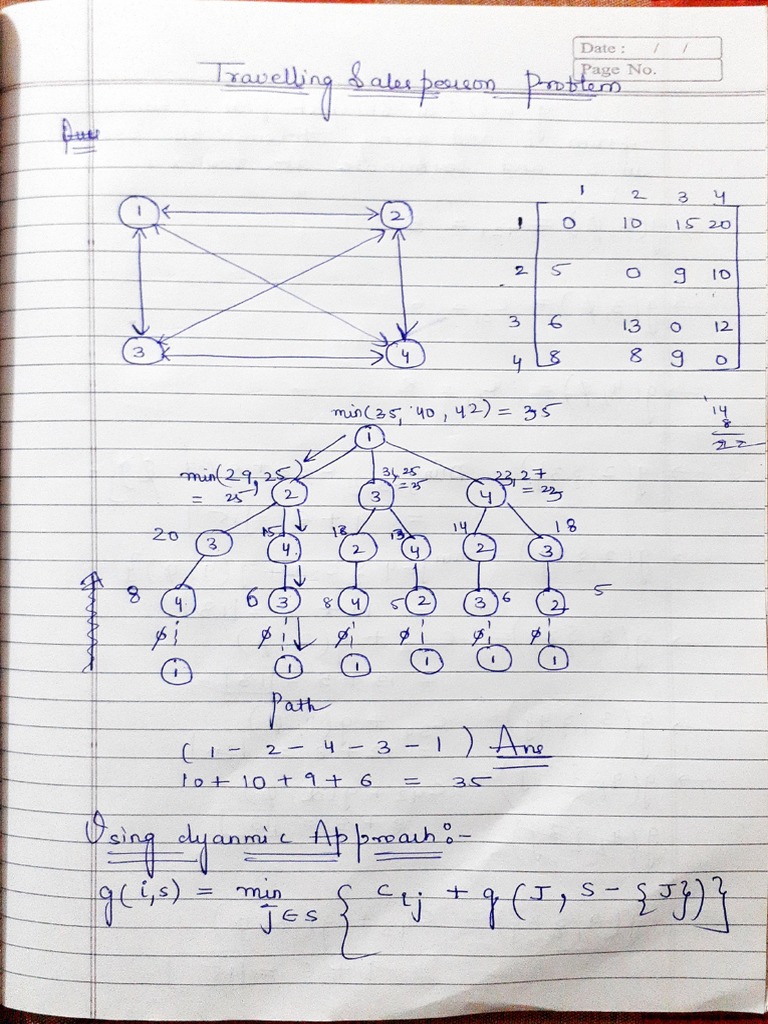 Date : / /
Page No.
Travelling Salesperson Problem
1 2
3 4
1 2 3 4
1 0 10 15 20
2 5 0 9 10
3 6 13 0 12
4 8 8 9 0
min(35, 40, 42) = 35
14
8
22
1
min(29, 25)
= 25
31, 25
= 25
2 3 4
= 23
20 15 18 13 14 18
3 4 2 4 2 3
8 6 8 5 6 5
4 3 4 2 3 2
1 1 1 1 1 1
Path
(1 - 2 - 4 - 3 - 1) Ans
10 + 10 + 9 + 6 = 35
Using dyanmic Approach :-
g(i,s) = min { cij + g(J, S - {J})}
j∈s